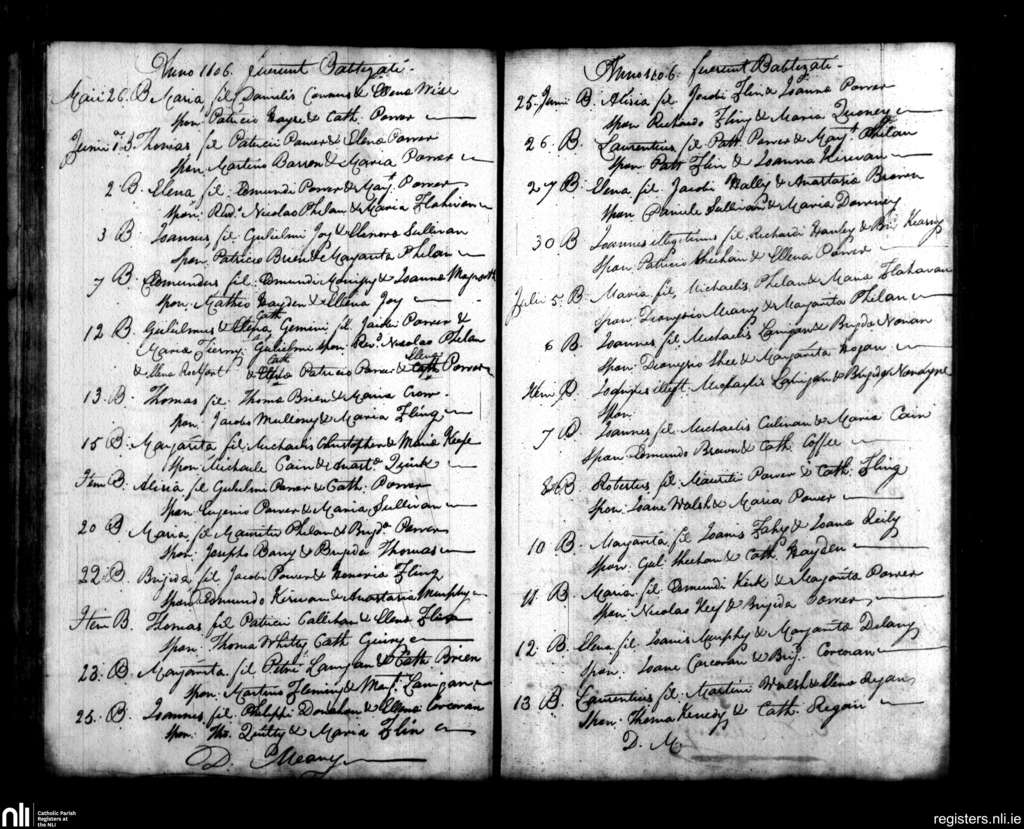 Anno 1806. fuerunt Baptizati.
Maii 26. B Maria fil Danielis Connors & Elena Wise
Spon. Patricio Hayes & Cath. Power
Junii 1. B. Thomas fil Patricii Power & Elena Power
Spon. Martino Barron & Maria Power
2 B. Elena fil. Edmundi Power & Mary Power
Spon. Revd. Nicolao Phelan & Maria Flahivan
3 B Joannes fil Gulielmi Joy & Elenora Sullivan
Spon. Patricio Brien & Margarita Phelan
7 B. Edmundus fil. Edmundi & Joanna
Spon. Mathio Hayden & Ellena Joy
12 B. Gulielmus & Cath Gemini fil Jacobi Power &
Maria Tierny. Gulielmi spon. Revd. Nicolao Phelan
& Elena Rochfort & Cath Patricio Power & Elena Power
13. B. Thomas fil. Thoma Brien & Maria
Spon. Jacobo Mullony & Maria Fling
15 B. Margarita fil. Michaelis Christopher & Maria Keefe
Spon. Michaele Cain & Anasta. Quirk
Item B. Alicia fil Gulielmi Power & Cath. Power
Spon. Eugenio Power & Maria Sullivan
20 B Maria fil Mauritii Phelan & Brigda Power
Spon. Josepho Barry & Brigida Thomas
22. B. Brigida fil Jacobi Power & Honoria Fling
Spon. Edmundo Kirwan & Anastasia Murphy
Item B. Thomas fil Patricii Callihan & Elena
Spon. Thoma Whitty Cath Guiny
23. B. Margarita fil Petri Lanigan & Cath Brien
Spon. Martino Fleming & Mary. Lanigan
25. B. Joannes, fil. Philippi Donahan & Ellena Corcoran
Spon. Tho. & Maria Flin
D. Meany
Anno 1806. fuerunt Baptizati.
25. Junii B. Alicia fil. Jacobi Flin & Joanna Power
Spon Richardo Fling & Maria
26. B. Laurentius fil Patt. Power & Mary. Phelan
Spon. Patt Flin & Joanna Kirwan
27 B. Elena fil. Jacobi Wally & Anastasia Brawn
Spon. Daniele Sullivan & Maria Downey
30 B Joannes illegitimus fil. Richardi & Brid. Kearny
Spon Patricio Sheehan & Ellena Power
Julii 5. B. Maria fil, Michaelis Phelan & Maria Flahavan
Spon. Dionysio Meany & Margarita Phelan
6 B. Joannes fil. Michaelis Lanigan & Brigda Nonan
Spon. Dionysio Shee & Margarita Hogan
Item B. illegit. Michaelis & Brigida
Spon.
7 B. Joannes fil Michaelis Culinan & Maria Cain
Spon Edmundo Brown & Cath. Coffee
8 B Robertus fil Mauritii Power & Cath. Fling
Spon. Joane Walsh & Maria Power
10 B. Margarita fil Joanis Fahy & Joana Reily
Spon. Gul. Sheehan & Cath Hayden
11 B. Maria fil Edmundi Kirk & Margarita Power
Spon. Nicolao Keef & Brigida Power
12. B. Elena fil Joanis Murphy & Margarita Delany
Spon. Joane Corcoran & Brid. Corcoran
13 B. Laurentius fil. Martini Walsh & Elena Regan
Spon. Thoma Kenedy & Cath. Regan
D. M
nli Catholic Parish
Registers at
the NLI
registers.nli.ie